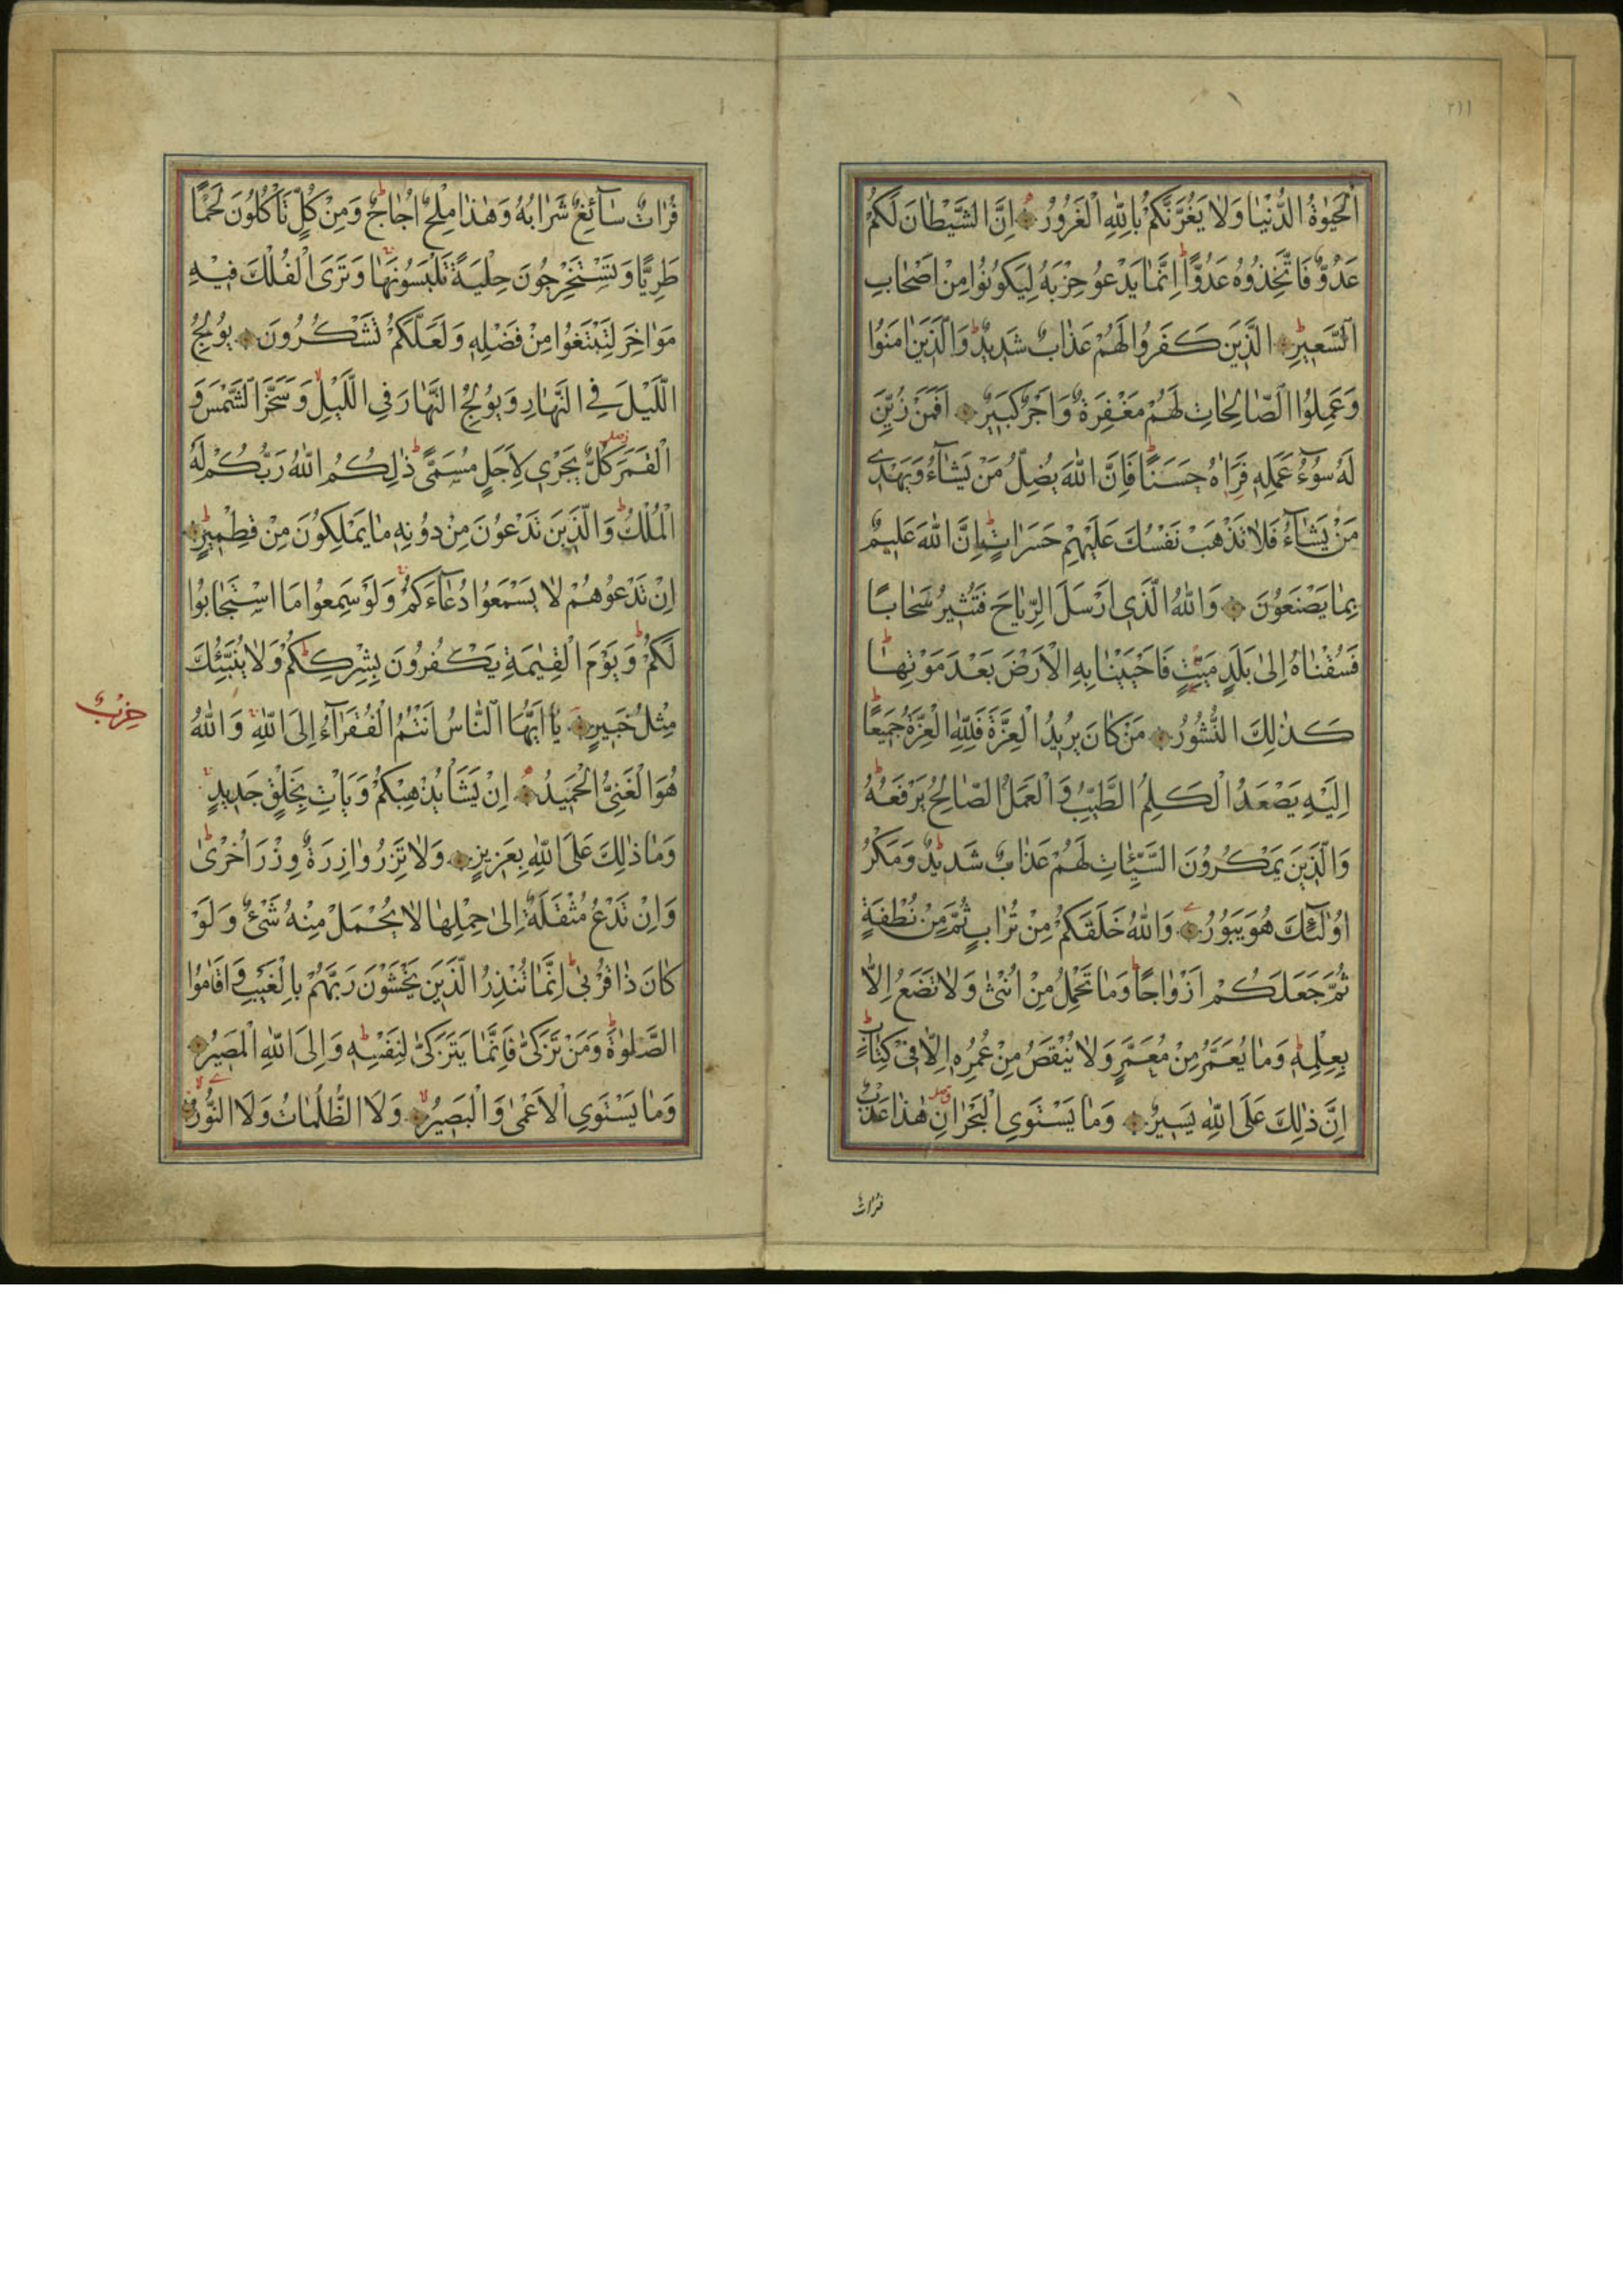 ٢١١
الْحَيٰوةُ الدُّنْيَا وَلَا يَغُرَّنَّكُمْ بِاللّٰهِ الْغَرُورُ اِنَّ الشَّيْطَانَ لَكُمْ
عَدُوٌّ فَاتَّخِذُوهُ عَدُوًّا اِنَّمَا يَدْعُو حِزْبَهُ لِيَكُونُوا مِنْ اَصْحَابِ
السَّعِيرِ الَّذِينَ كَفَرُوا لَهُمْ عَذَابٌ شَدِيدٌ وَالَّذِينَ اٰمَنُوا
وَعَمِلُوا الصَّالِحَاتِ لَهُمْ مَغْفِرَةٌ وَاَجْرٌ كَبِيرٌ اَفَمَنْ زُيِّنَ
لَهُ سُوءُ عَمَلِهِ فَرَاٰهُ حَسَنًا فَاِنَّ اللّٰهَ يُضِلُّ مَنْ يَشَاءُ وَيَهْدِي
مَنْ يَشَاءُ فَلَا تَذْهَبْ نَفْسُكَ عَلَيْهِمْ حَسَرَاتٍ اِنَّ اللّٰهَ عَلِيمٌ
بِمَا يَصْنَعُونَ وَاللّٰهُ الَّذِي اَرْسَلَ الرِّيَاحَ فَتُثِيرُ سَحَابًا
فَسُقْنَاهُ اِلٰى بَلَدٍ مَيِّتٍ فَاَحْيَيْنَا بِهِ الْاَرْضَ بَعْدَ مَوْتِهَا
كَذٰلِكَ النُّشُورُ مَنْ كَانَ يُرِيدُ الْعِزَّةَ فَلِلّٰهِ الْعِزَّةُ جَمِيعًا
اِلَيْهِ يَصْعَدُ الْكَلِمُ الطَّيِّبُ وَالْعَمَلُ الصَّالِحُ يَرْفَعُهُ
وَالَّذِينَ يَمْكُرُونَ السَّيِّئَاتِ لَهُمْ عَذَابٌ شَدِيدٌ وَمَكْرُ
اُولٰئِكَ هُوَ يَبُورُ وَاللّٰهُ خَلَقَكُمْ مِنْ تُرَابٍ ثُمَّ مِنْ نُطْفَةٍ
ثُمَّ جَعَلَكُمْ اَزْوَاجًا وَمَا تَحْمِلُ مِنْ اُنْثٰى وَلَا تَضَعُ اِلَّا
بِعِلْمِهِ وَمَا يُعَمَّرُ مِنْ مُعَمَّرٍ وَلَا يُنْقَصُ مِنْ عُمُرِهِ اِلَّا فِي كِتَابٍ
اِنَّ ذٰلِكَ عَلَى اللّٰهِ يَسِيرٌ وَمَا يَسْتَوِي الْبَحْرَانِ هٰذَا عَذْبٌ
فُرَاتٌ
فُرَاتٌ سَائِغٌ شَرَابُهُ وَهٰذَا مِلْحٌ اُجَاجٌ وَمِنْ كُلٍّ تَاْكُلُونَ لَحْمًا
طَرِيًّا وَتَسْتَخْرِجُونَ حِلْيَةً تَلْبَسُونَهَا وَتَرَى الْفُلْكَ فِيهِ
مَوَاخِرَ لِتَبْتَغُوا مِنْ فَضْلِهِ وَلَعَلَّكُمْ تَشْكُرُونَ يُولِجُ
اللَّيْلَ فِي النَّهَارِ وَيُولِجُ النَّهَارَ فِي اللَّيْلِ وَسَخَّرَ الشَّمْسَ وَ
الْقَمَرَ كُلٌّ يَجْرِي لِاَجَلٍ مُسَمًّى ذٰلِكُمُ اللّٰهُ رَبُّكُمْ لَهُ
الْمُلْكُ وَالَّذِينَ تَدْعُونَ مِنْ دُونِهِ مَا يَمْلِكُونَ مِنْ قِطْمِيرٍ
اِنْ تَدْعُوهُمْ لَا يَسْمَعُوا دُعَاءَكُمْ وَلَوْ سَمِعُوا مَا اسْتَجَابُوا
لَكُمْ وَيَوْمَ الْقِيٰمَةِ يَكْفُرُونَ بِشِرْكِكُمْ وَلَا يُنَبِّئُكَ
مِثْلُ خَبِيرٍ يَا اَيُّهَا النَّاسُ اَنْتُمُ الْفُقَرَاءُ اِلَى اللّٰهِ وَاللّٰهُ
حِزْبٌ
هُوَ الْغَنِيُّ الْحَمِيدُ اِنْ يَشَاْ يُذْهِبْكُمْ وَيَاْتِ بِخَلْقٍ جَدِيدٍ
وَمَا ذٰلِكَ عَلَى اللّٰهِ بِعَزِيزٍ وَلَا تَزِرُ وَازِرَةٌ وِزْرَ اُخْرٰى
وَاِنْ تَدْعُ مُثْقَلَةٌ اِلٰى حِمْلِهَا لَا يُحْمَلْ مِنْهُ شَيْءٌ وَلَوْ
كَانَ ذَا قُرْبٰى اِنَّمَا تُنْذِرُ الَّذِينَ يَخْشَوْنَ رَبَّهُمْ بِالْغَيْبِ وَاَقَامُوا
الصَّلٰوةَ وَمَنْ تَزَكّٰى فَاِنَّمَا يَتَزَكّٰى لِنَفْسِهِ وَاِلَى اللّٰهِ الْمَصِيرُ
وَمَا يَسْتَوِي الْاَعْمٰى وَالْبَصِيرُ وَلَا الظُّلُمَاتُ وَلَا النُّورُ